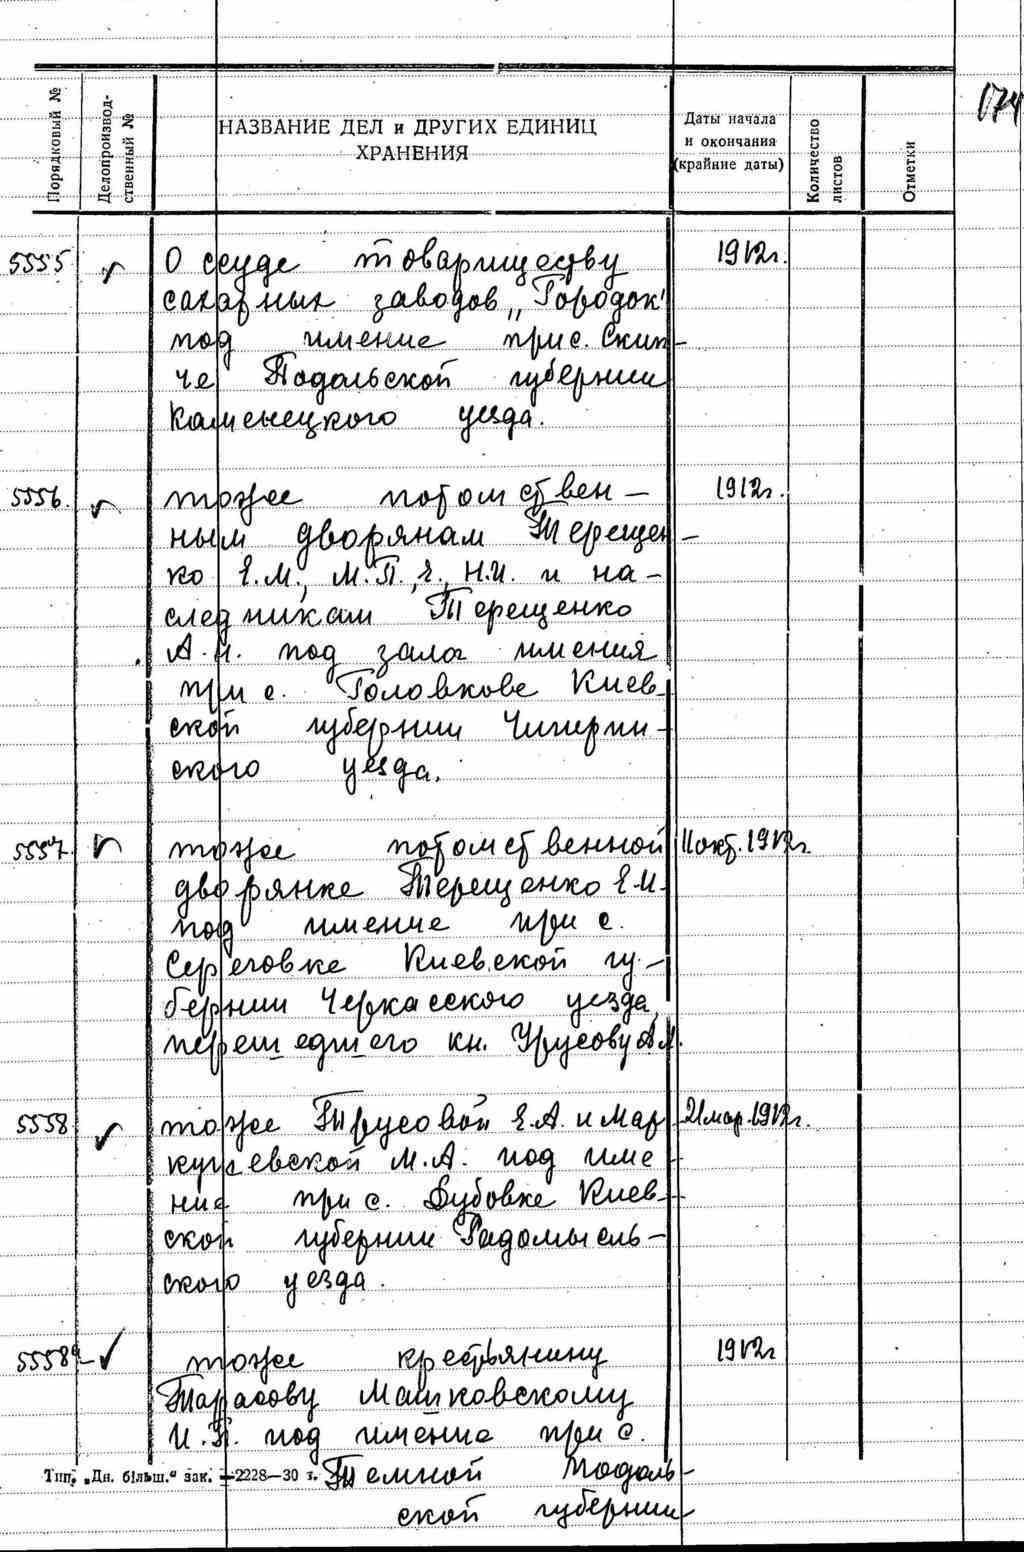 174
Порядковый №
Делопроизвод-
ственный №
НАЗВАНИЕ ДЕЛ и ДРУГИХ ЕДИНИЦ
ХРАНЕНИЯ
Даты начала
и окончания
(крайние даты)
Количество
листов
Отметки
5555 О ссуде товариществу 1912г.
сахарных заводов „Городок"
под имение при с. Скип-
че Подольской губернии
Каменецкого уезда.
5556. тоже потомствен- 1912г.
ным дворянам Терещен-
ко Е.М., М.П., Е., Н.И. и на-
следникам Терещенко
А.Н. под залог имения
при с. Головкове Киев-
ской губернии Чигирин-
ского уезда.
5557. тоже потомственной 11 окт. 1912г.
дворянке Терещенко Е.И.
под имение при с.
Сереговке Киевской гу-
бернии Черкасского уезда,
перешедшего кн. Урусову А.М.
5558 тоже Трусовой Е.А. и Мар 21 мар. 1912г.
кушевской М.А. под име-
ние при с. Дубовке Киев-
ской губернии Радомысль-
ского уезда.
5558а тоже крестьянину 1912г
Тарасову Машковскому
И.П. под имение при с.
Тип. „Дн. більш." зак. —2228—30 г. Темной Подоль-
ской губернии